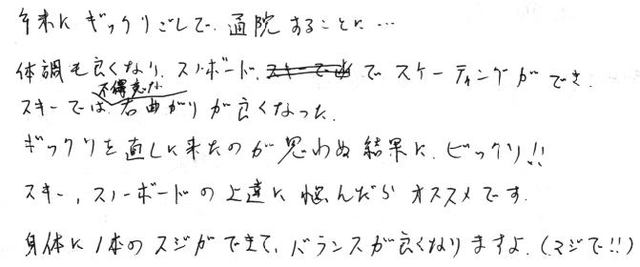 年末にギックリごしで、通院することに…
体調も良くなり、スノーボードでスケーティングができ、
スキーでは、不得意な右曲がりが良くなった。
ギックリを直しに来たのが思わぬ結果に、ビックリ!!
スキー、スノーボードの上達に悩んだらオススメです。
身体に1本のスジができて、バランスが良くなりますよ。(マジで!!)